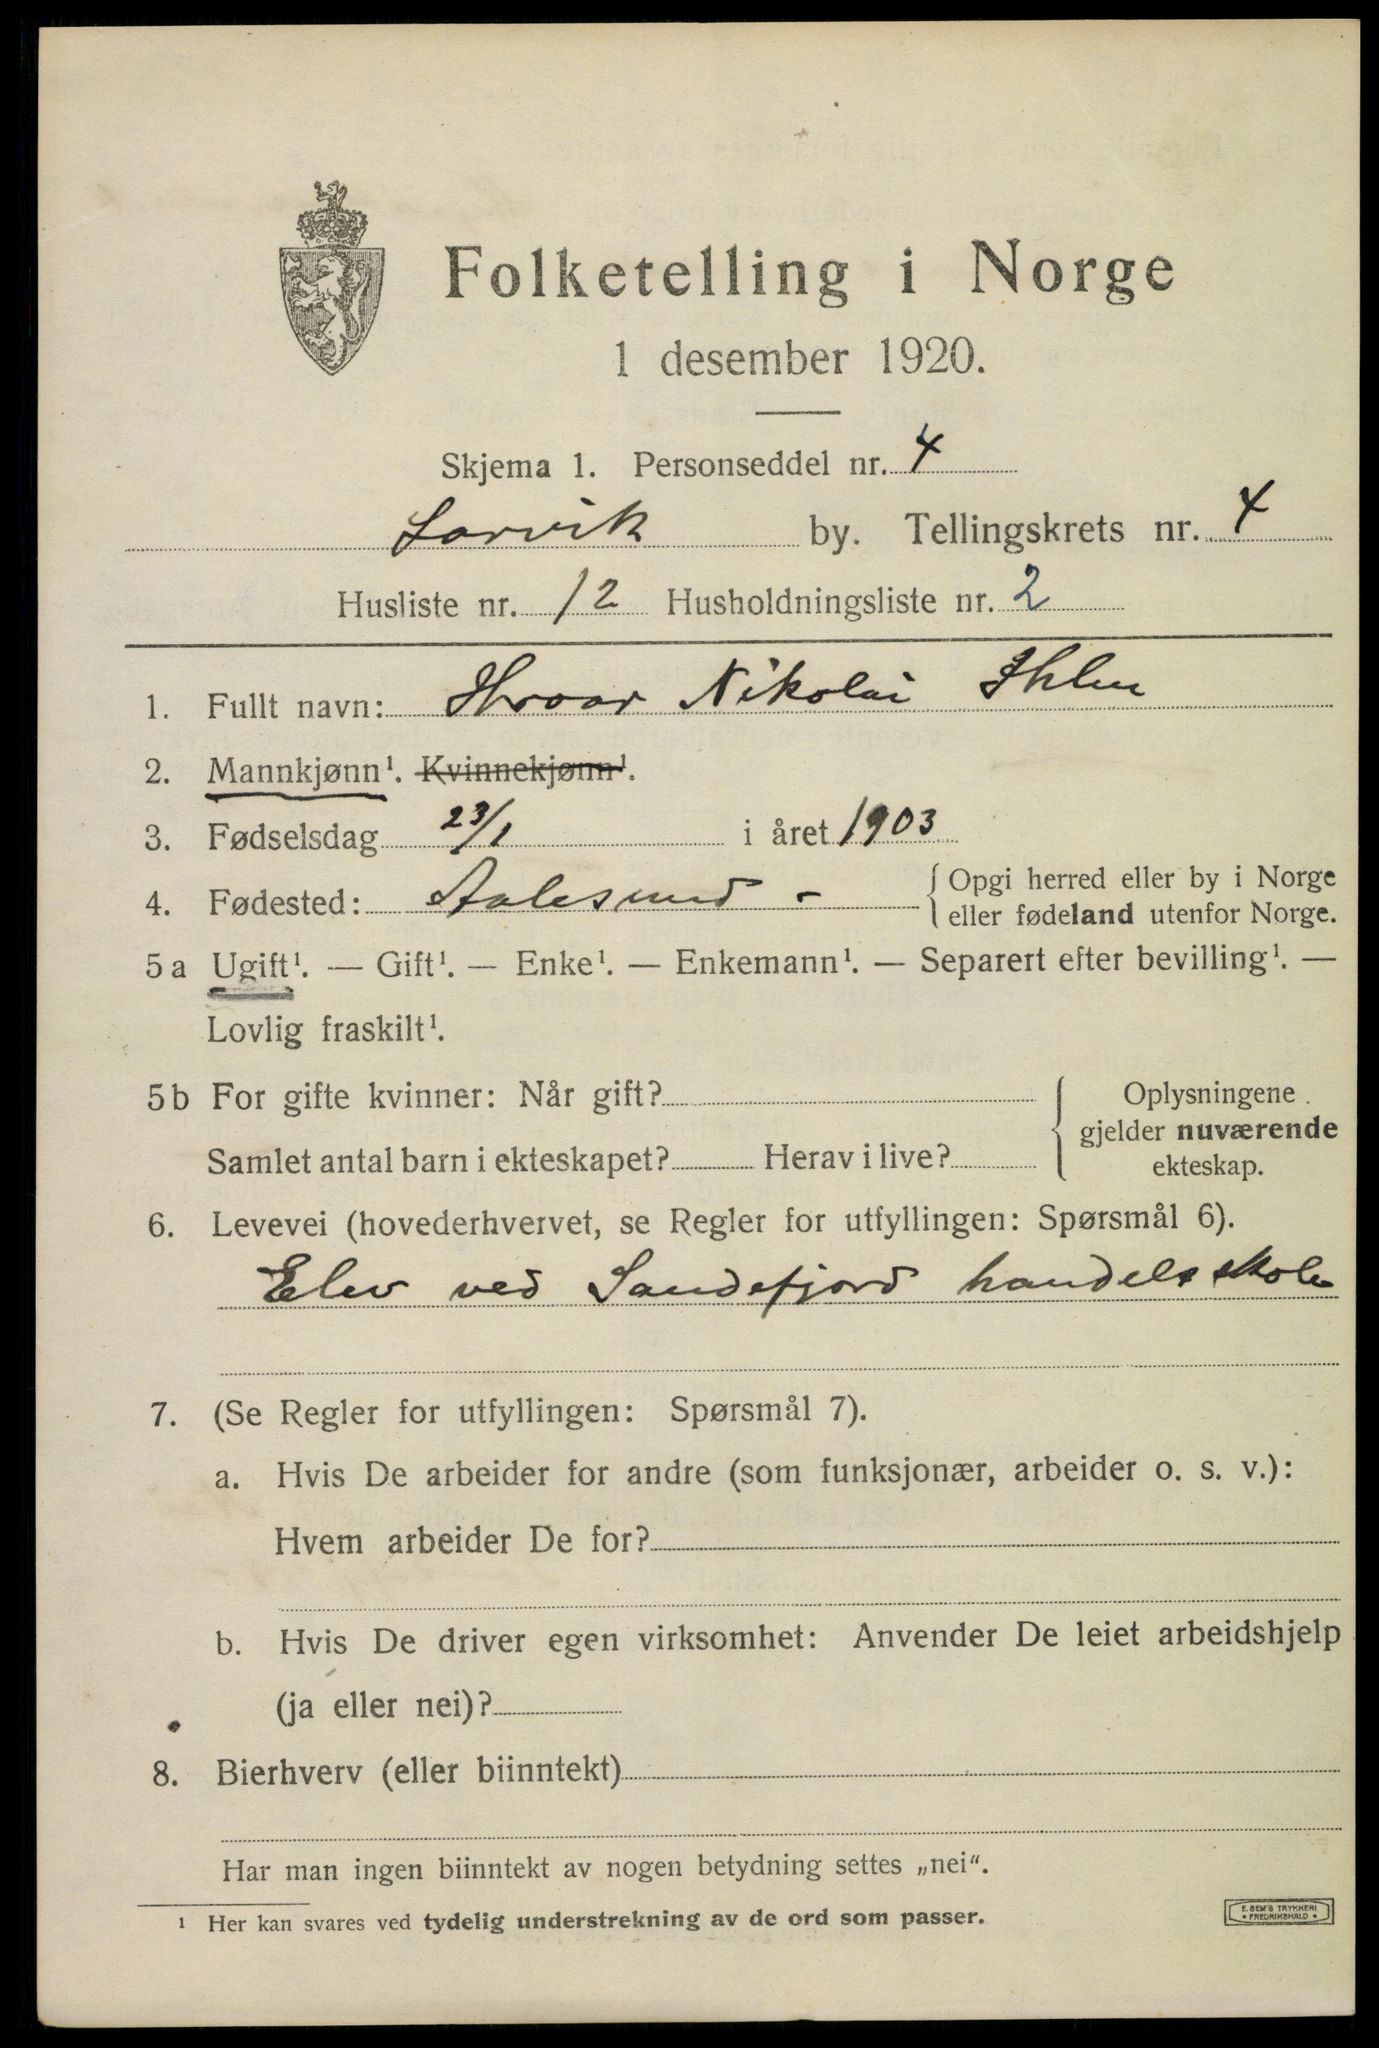 Folketelling i Norge
1 desember 1920.
Skjema 1. Personseddel nr. 4
Larvik by. Tellingskrets nr. 4
Husliste nr. 12 Husholdningsliste nr. 2
1. Fullt navn: Hroar Nikolai Ihlen
2. Mannkjønn¹. Kvinnekjønn¹.
3. Fødselsdag 23/1 i året 1903
4. Fødested: Aalesund - {Opgi herred eller by i Norge
eller fødeland utenfor Norge.
5 a Ugift¹. — Gift¹. — Enke¹. — Enkemann¹. — Separert efter bevilling¹. —
Lovlig fraskilt¹.
5 b For gifte kvinner: Når gift?
Samlet antal barn i ekteskapet? Herav i live?
Oplysningene
gjelder nuværende
ekteskap.
6. Levevei (hovederhvervet, se Regler for utfyllingen: Spørsmål 6).
Elev ved Sandefjord handelsskole
7. (Se Regler for utfyllingen: Spørsmål 7).
a. Hvis De arbeider for andre (som funksjonær, arbeider o. s. v.):
Hvem arbeider De for?
b. Hvis De driver egen virksomhet: Anvender De leiet arbeidshjelp
(ja eller nei)?
8. Bierhverv (eller biinntekt)
Har man ingen biinntekt av nogen betydning settes „nei“.
¹ Her kan svares ved tydelig understrekning av de ord som passer.
E. SEM'S TRYKKERI
• FREDRIKSHALD •